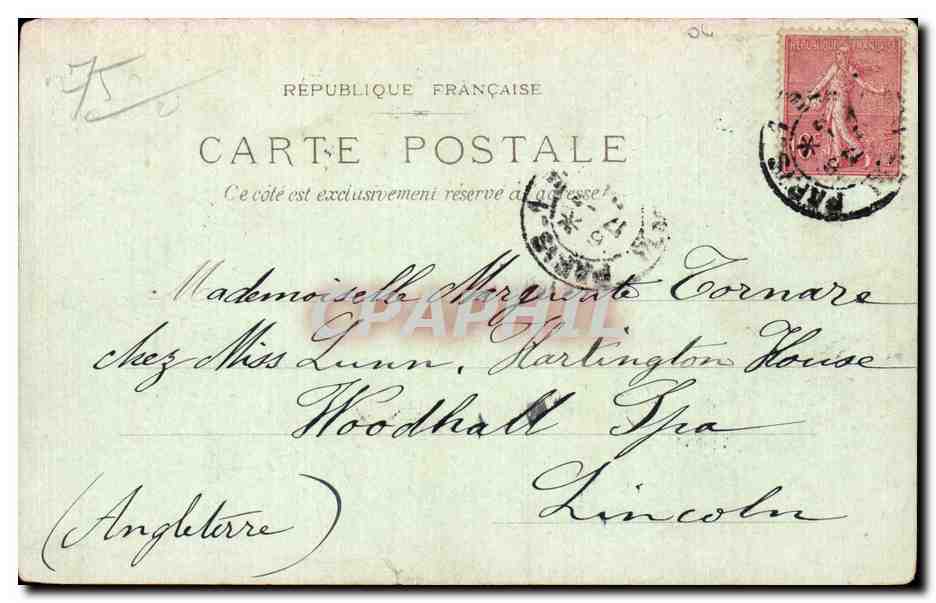 75
OL
RÉPUBLIQUE FRANÇAISE
RÉPUBLIQUE FRANÇAISE
CARTE POSTALE
Ce côté est exclusivement réservé à l'adresse
PARIS
PARIS-1
Mademoiselle Marguerite Tornare
CPAPHIL
chez Miss Lunn, Hartington House
Woodhall Spa
Lincoln
(Angleterre)